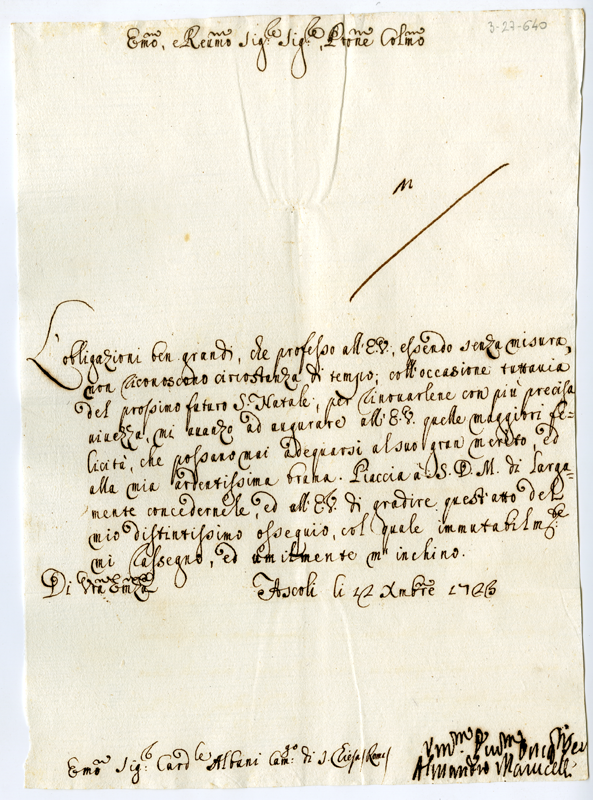 3-27-640
Emo, e Reumo Sig.re Sig.re, Prone Colmo
L'obligazioni ben grandi, che professo all'E.V., essendo senza misura,
non riconoscono circostanza di tempo; coll'occasione tuttavia
del prossimo futuro S. Natale, per rinovarlene con più precisa
vivezza, mi avanzo ad augurare all'E.V. quelle maggiori fe=
licità, che possano mai adequarsi al suo gran merito, ed
alla mia ardentissima brama. Piaccia à S. D. M. di larga=
mente concedernele, ed all'E.V. di gradire quest'atto del
mio distintissimo ossequio, col quale immutabilm.te
mi rassegno, ed umilmente m'inchino.
Di Vra Emza
Ascoli li 12 Xmbre 1726
Emo Sig.r Card.le Albani Cam.go di S. Chiesa Roma
Alessandro Marucelli